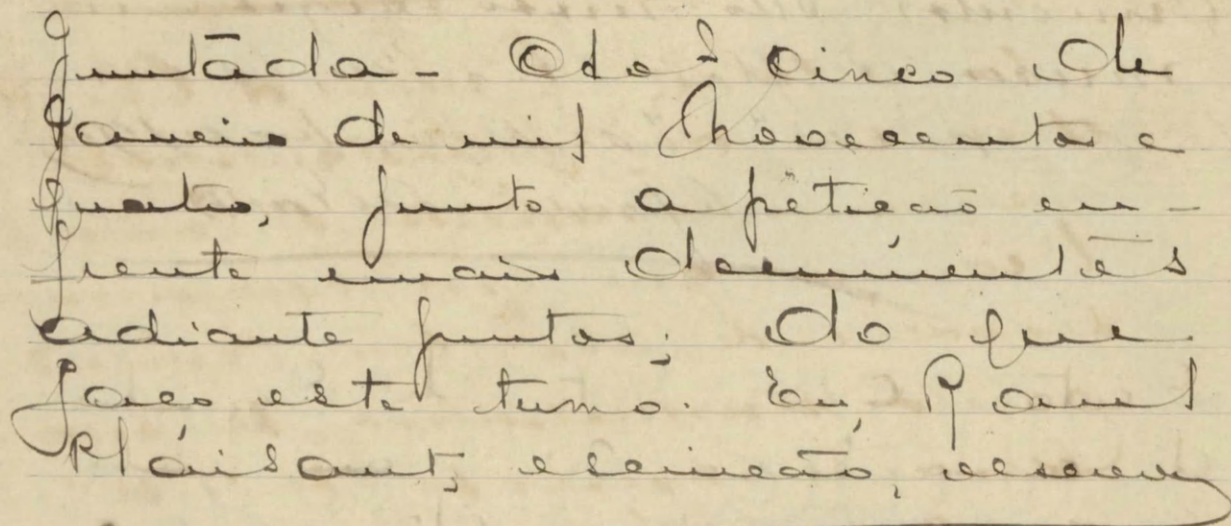 Juntada - Aos cinco de
Janeiro de mil novecentos e
quatro, junto a petição em-
frente e mais documentos
adiante juntos; do que
faço este termo. Eu, Raul
Plaisant, escrivão, escrevy